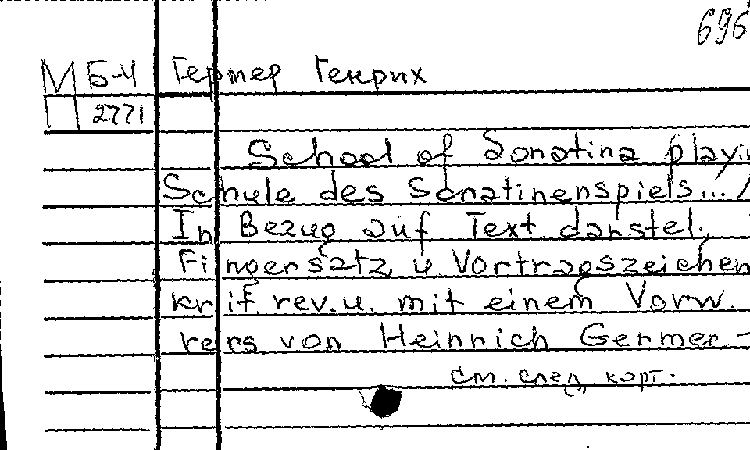 696
М Б-4 Гермер Генрих
П 2771
School of Sonatina playi
Schule des Sonatinenspiels... /
In Bezug auf Text darstel.,
Fingersatz u Vortragszeichen
krit. rev. u. mit einem Vorw.
vers von Heinrich Germer -
см. след. карт.